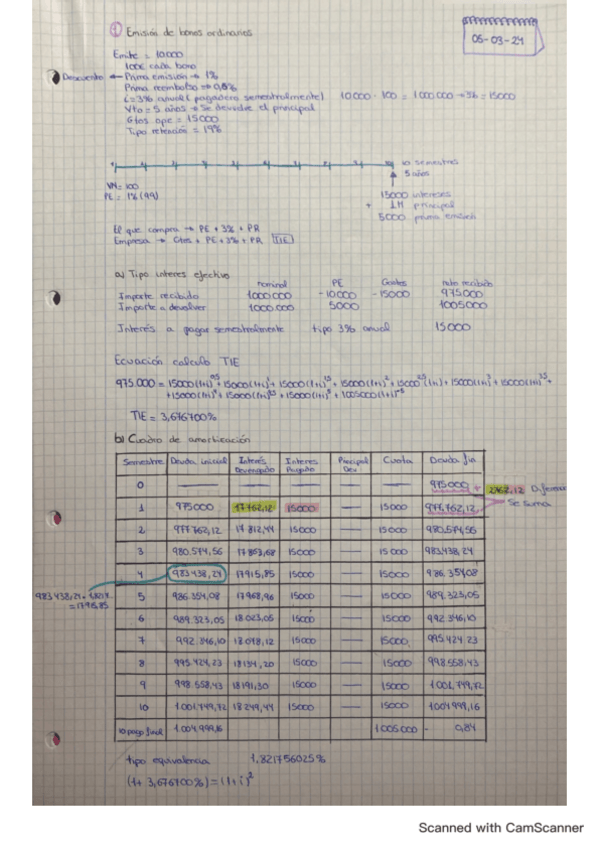 ① Emisión de bonos ordinarios
05-03-24
Emite = 10000
100€ cada bono
Descuento ← Prima emisión → 1%
Prima reembolso → 0,5%
i=3% anual (pagadero semestralmente) 10000 · 100 = 1000000 → 3% = 15000
Vto = 5 años → Se devuelve el principal
Gtos ope = 15000
Tipo retención = 19%
10 semestres
5 años
VN = 100
PE = 1% (99)
15000 intereses
+ 1M principal
5000 prima emisión
El que compra → PE + 3% + PR
Empresa → Gtos + PE + 3% + PR TIE
a) Tipo interes efectivo
nominal PE Gastos neto recibido
Importe recibido 1000000 -10000 -15000 975000
Importe a devolver 1000000 5000 1005000
Interés a pagar semestralmente tipo 3% anual 15000
Ecuación calculo TIE
TIE = 3,676700%
b) Cuadro de amortización
Semestre Deuda inicial Interés Devengado Interes Pagado Principal Dev Cuota Deuda fin
0 — — — — — 975000 + 2762,12 Diferencia
Se suma
1 975000 17762,12 15000 — 15000 977.762,12
2 977762,12 17812,44 15000 — 15000 980.574,56
3 980.574,56 17863,68 15000 — 15000 983.438,24
4 983438,24 17915,85 15000 — 15000 986.354,08
983438,24 ·
5 986.354,08 17968,96 15000 — 15000 989.323,05
6 989.323,05 18023,05 15000 — 15000 992.346,10
7 992.346,10 18078,12 15000 — 15000 995.424,23
8 995.424,23 18134,20 15000 — 15000 998.558,43
9 998.558,43 18191,30 15000 — 15000 1.001.749,72
10 1.001.749,72 18249,44 15000 — 15000 1004999,16
10 pago final 1.004.999,16 1005000 - 0,84
tipo equivalencia 1,821756025%
(1+ 3,676700%) = (1+i)²
Scanned with CamScanner